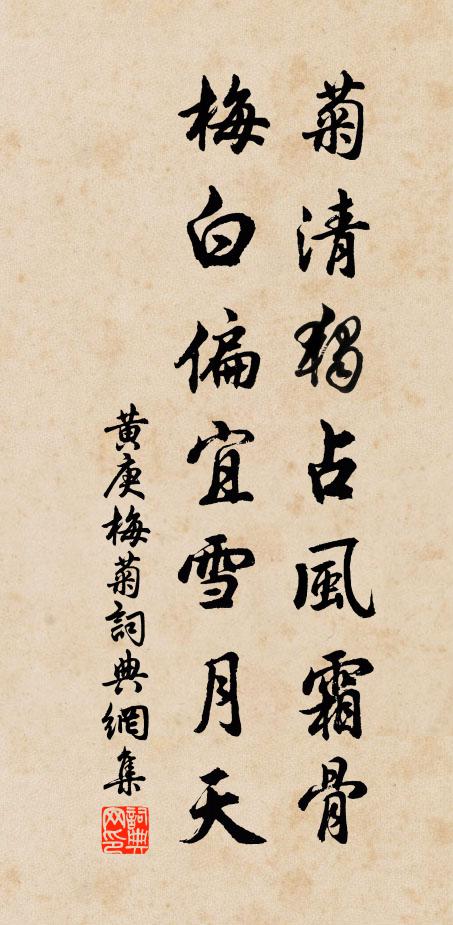 菊清獨占風霜骨
梅白偏宜雪月天
黄庚梅菊詞典網集
詞典网印